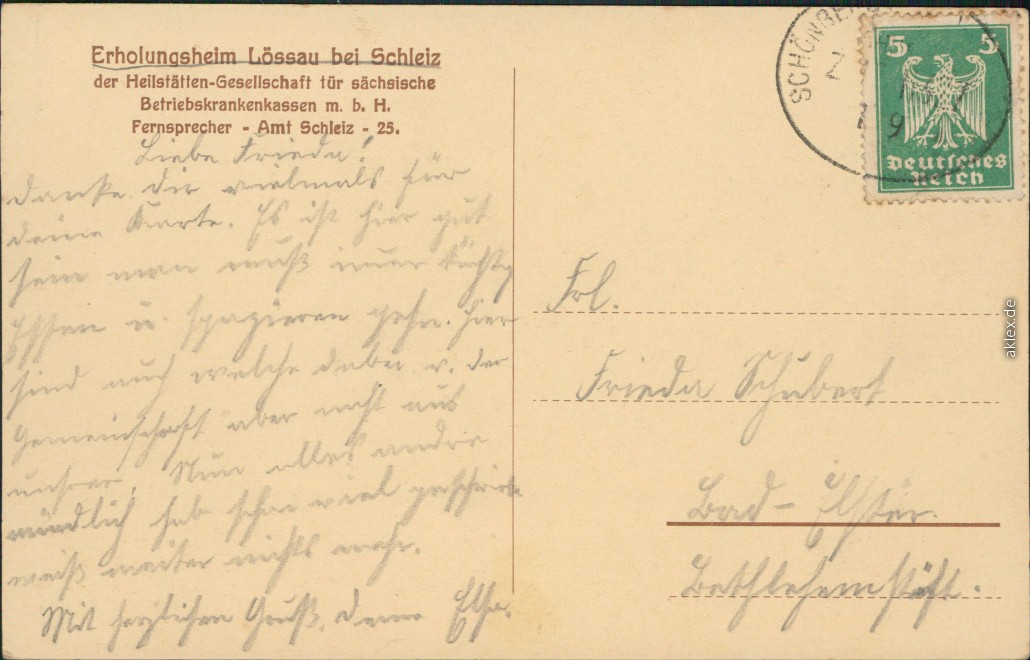 Erholungsheim Lössau bei Schleiz
der Heilstätten-Gesellschaft für sächsische
Betriebskrankenkassen m. b. H.
Fernsprecher - Amt Schleiz - 25.
Liebe Frieda!
danke dir vielmals für
deine Karte. Es ist hier gut
sein man muß nur tüchtig
Essen u. spazieren gehn. Hier
sind auch welche dabei v. der
Gemeinschaft aber nicht aus
unsrer. Nun alles andre
mündlich hab schon viel geschrieben
weiß weiter nichts mehr.
Mit herzlichen Gruß, deine Elsa.
SCHÖNBERG
5 5
Deutsches
Reich
Frl.
Frieda Schubert
Bad-Elster.
Bethlehemstift.
aklex.de